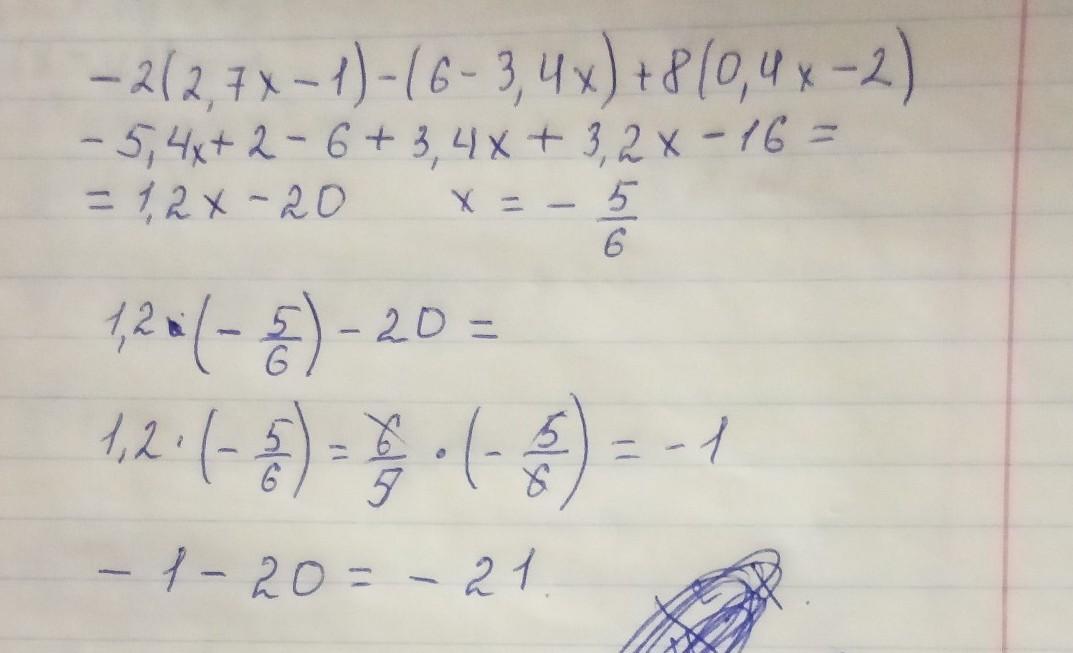 -2(2,7x-1)-(6-3,4x)+8(0,4x-2)
-5,4x+2-6+3,4x+3,2x-16=
=1,2x-20 x=-5/6
1,2·(-5/6)-20=
1,2·(-5/6)=6/5·(-5/6)=-1
-1-20=-21.